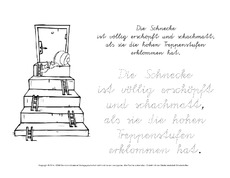 Die Schnecke
ist völlig erschöpft und schachmatt,
als sie die hohen Treppenstufen
erklommen hat.
Die Schnecke
ist völlig erschöpft
und schachmatt,
als sie die hohen
Treppenstufen
erklommen hat.